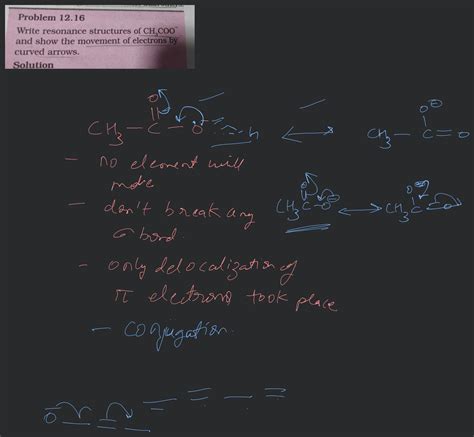 Problem 12.16
Write resonance structures of CH₃COO⁻
and show the movement of electrons by
curved arrows.
Solution
O O
CH₃ — C — O⁻ ⟷ CH₃ — C = O
— no element will
move
CH₃ C — O ⟷ CH₃ C — O
— don't break any
σ bond.
— only delocalization of
π electrons took place
— conjugation.